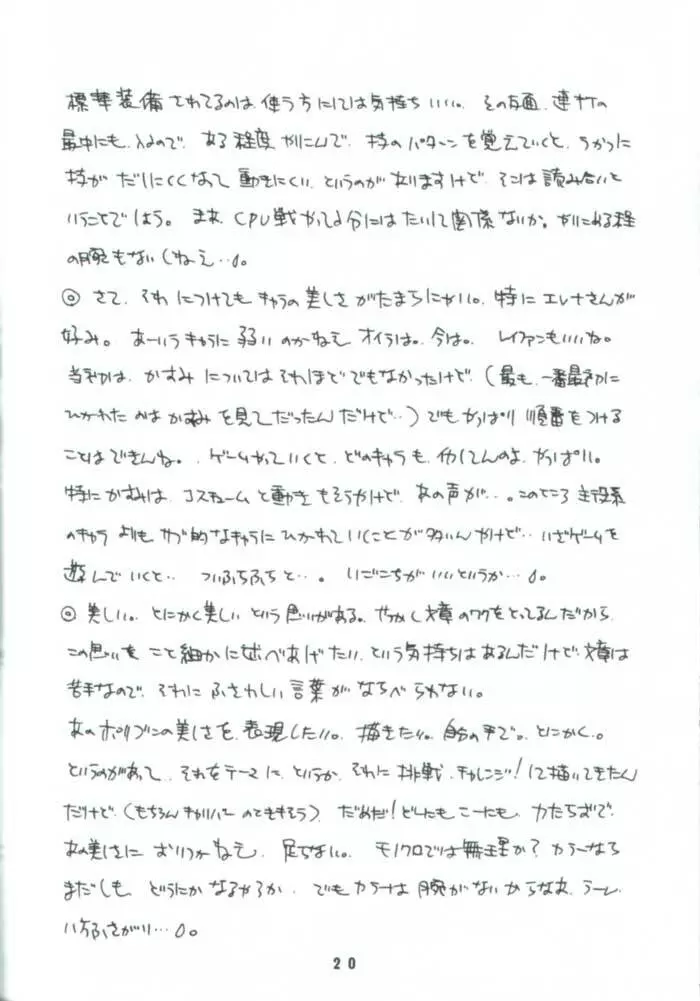 標準装備されてるのは、使う方にしては気持ちいい。その反面、連打の
最中にも、入るので、ある程度やりこんで、技のパターンを覚えていくと、うかつに
技がだしにくくなって動きにくい、というのがありますけど、そこは読み合いと
いうことでしょう。まぁ、CPU戦やってる分にはたいして関係ないか。やりこめる程
の腕もないしねぇ…。
◎さて、それにつけてもキャラの美しさがたまらにゃい。特にエレナさんが
好み。あーいうキャラに弱いのかねえオイラは。今は。レイファンもいいね。
当初は、かすみについてはそれほどでもなかったけど、(最も、一番最初に
ひかれたのはかすみを見てだったんだけど‥)でもやっぱり順番をつける
ことはできんね。ゲームやっていくと、どのキャラも、 やっぱり。
特にかすみは、コスチュームと動きもそうやけど、あの声が‥。このところ主役系
のキャラよりも、サブ的なキャラにひかれていくことが多いんやけど‥いざゲームを
遊んでいくと‥ついふらふらと‥。いごこちがいいというか…。
◎美しい。とにかく美しいという思いがある。せっかく文章のワクをとってるんだから、
この思いをこと細かに述べあげたい、という気持ちはあるんだけど文章は
苦手なので、それにふさわしい言葉がならべられない。
あのポリゴンの美しさを、表現したい。描きたい。自分の手で。とにかく。
というのがあって、それをテーマに、というか、それに挑戦、チャレンジ!して描いてきたん
だけど、(もちろんキャリバーのときもそう)、だめだ!どーしたもこーしたも、力たらずで、
あの美しさにおいつかねえ、足らない。モノクロでは無理か?カラーなら
まだしも、どうにかなるやろか、でもカラーは腕がないからなぁ、うーん、
八方ふさがり…。
20